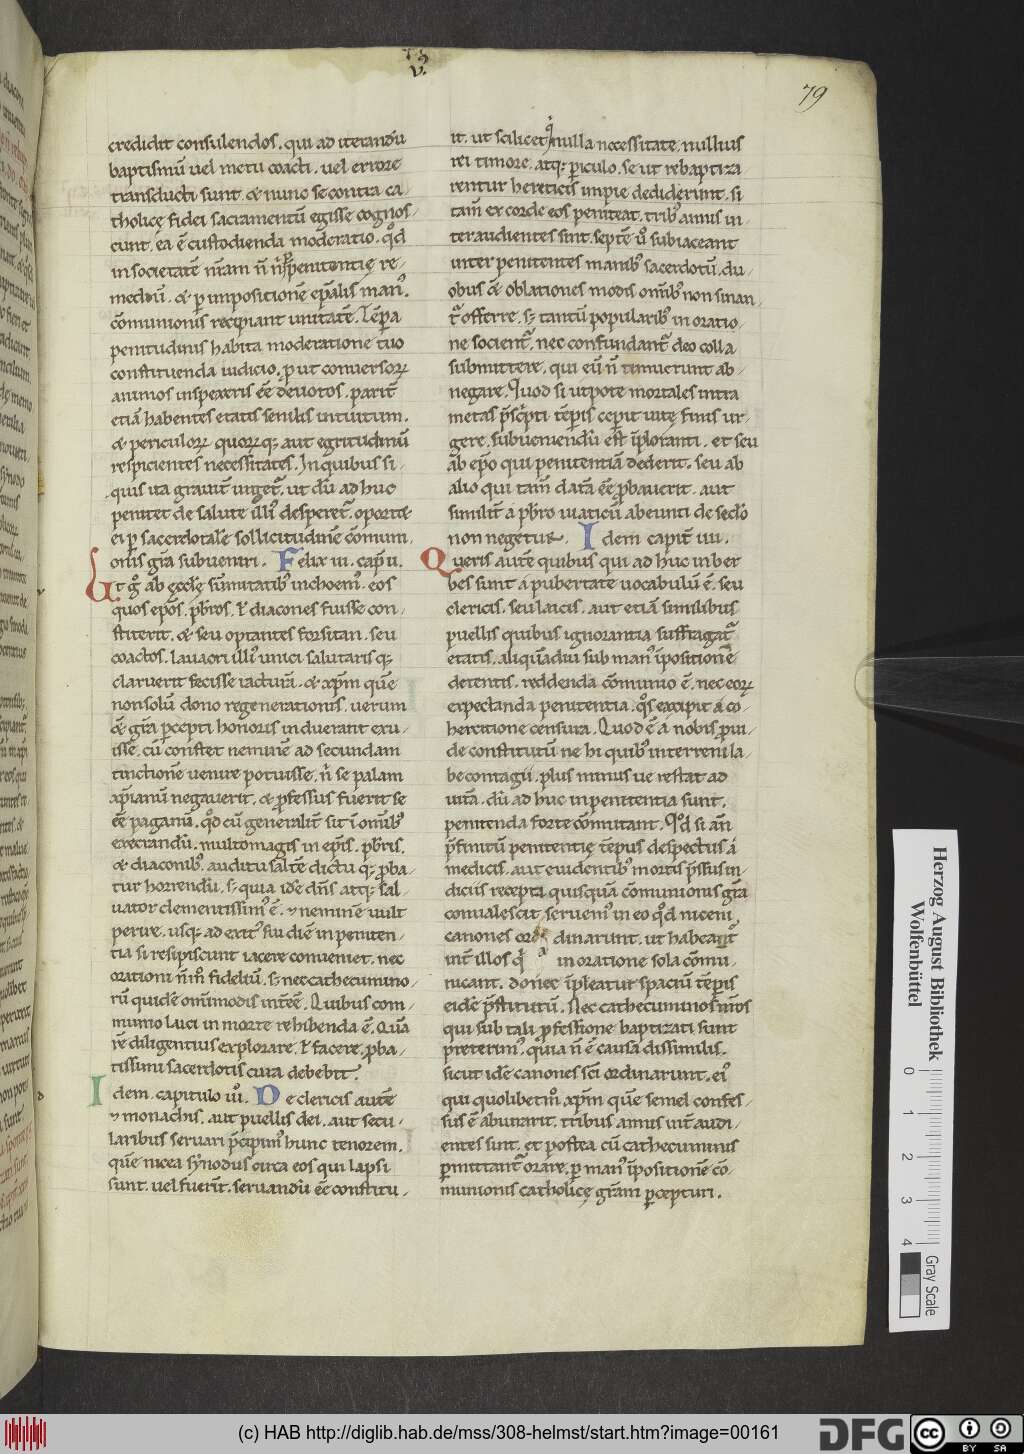 79
credidit consulendos. qui ad iterandū
baptismū uel metu coacti. uel errore
transducti sunt. & nunc se contra ca-
tholicę fidei sacramentū egisse cognos-
cunt. ea ē custodienda moderatio. qd̄
in societatē nr̄am n̄ n̄ per penitentię re-
mediū. & ꝑ impositionē ep̄alis man'.
cōmunionis recipiant unitatē.
penitudinis habita moderatione tuo
constituenda iudicio. ꝓut conuersoꝝ
animos inspexeris eē deuotos. parit̄
etiā habentes etatis senilis intuitum.
& periculoꝝ quoꝝq; aut egritudinū
respicientes necessitates. In quibus si
quis ita grauit̄ urget̄. ut dū adhuc
penitet de salute illi' desperet̄. oportet
ei ꝑ sacerdotalē sollicitudinē cōmuni-
onis gr̄a subueniri. Felix iii. cap̄ ii.
Ut g° ab ęcclę sūmitatib' inchoem'. eos
quos ep̄os. pb̄ros. ł diacones fuisse con-
stiterit. & seu optantes forsitan. seu
coactos. lauacri illi' unici salutaris q;
claruerit fecisse iacturā. & xp̄m quē
nonsolū dono regenerationis. uerum
& gr̄a ꝑcepti honoris induerant exu-
isse. cū constet neminē ad secundam
tinctionē uenire potuisse. n̄ se palam
xp̄ianū negauerit. & ꝓfessus fuerit se
eē paganū. qd̄ cū generalit̄ sit ī omīb'
execrandū. multomagis in ep̄is. pb̄ris.
& diaconib'. auditu saltē dictu q; ꝓba-
tur horrendū. s; quia idē dn̄s atq; sal-
uator clementissim' ē. & neminē uult
perire. usq; ad exit' sui diē in peniten-
tia si resipiscunt iacere conueniet. nec
orationi n̄ m° fideliū. s; nec cathecumino-
rū quidē omīmodis intēē. Quibus com-
munio laici in morte rehibenda ē. Quā
rē diligentius explorare. ł facere. ꝓba-
tissimi sacerdotis cura debebit.
Idem. capitulo iii'. De clericis autē
& monachis. aut puellis dei. aut secu-
laribus seruari p̄cipim' hunc tenorem.
quē nicea synodus circa eos qui lapsi
sunt. uel fuerīt. seruandū eē constitu-
it. ut scilicet qi nulla necessitate. nullius
rei timore. atq; ꝑiculo. se ut rebaptiza-
rentur hereticis impie dediderunt. si
tam̄ ex corde eos peniteat. trib' annis in-
ter audientes sint. septē u° subiaceant
inter penitentes manib' sacerdotū. du-
obus & oblationes modis omīb' non sinan-
t̄ offerre. s; tantū popularib' in oratio-
ne socient̄. nec confundant̄ deo colla
submittere. qui eū n̄ timuerunt ab-
negare. Quod si utpote mortales intra
metas p̄scpti tēpis ceperit uitę finis ur-
gere. subueniendū est īploranti. et seu
ab ep̄o qui penitentiā dederit. seu ab
alio qui tam̄ datā eē ꝓbauerit. aut
similit̄ a pb̄ro uiaticū abeunti de sec̄lo
non negetur. Idem capit̄ iiii.
Queris autē quibus qui adhuc inber-
bes sunt a pubertate uocabulū ē. seu
clericis. seu laicis. aut etiā similibus
puellis quibus ignorantia suffragat̄
etatis. aliquādiu sub man' īpositionē
detentis. reddenda cōmunio ē. nec eoꝝ
expectanda penitentia. qs excipit a co-
hercitione censura. Quod ē a nobis ꝓui-
de constitutū ne hi quib' interreni la-
be contagii. plus minus ue restat ad
uitā. dū adhuc in penitentia sunt.
penitenda forte cōmittant. Qd̄ si an̄
p̄finitū penitentię tēpus despectus a
medicis. aut euidentib' mortis p̄ssus in-
diciis recepta quisquā cōmunionis gr̄a
conualescit. seruem' in eo qd̄ niceni
canones ordinarunt. ut habeant̄
int̄ illos q̄ in oratione sola cōmu-
nicant. donec īpleatur spaciū tēpis
eidē p̄stitutū. Nec cathecuminos nr̄os
qui sub tali ꝓfessione baptizati sunt
preterim'. quia n̄ ē causa dissimilis.
sicut idē canones sc̄i ordinarunt. ei'
qui quolibetm° xp̄m quē semel confes-
sus ē abnuerit. tribus annis int̄ audi-
entes sint. et postea cū cathecuminis
ꝑmittant̄ orare. ꝑ man' īpositionē cō-
munionis catholicę gr̄am ꝑcepturi.
Herzog August Bibliothek
Wolfenbüttel
0 1 2 3 4
Gray Scale
(c) HAB http://diglib.hab.de/mss/308-helmst/start.htm?image=00161
DFG
cc BY SA